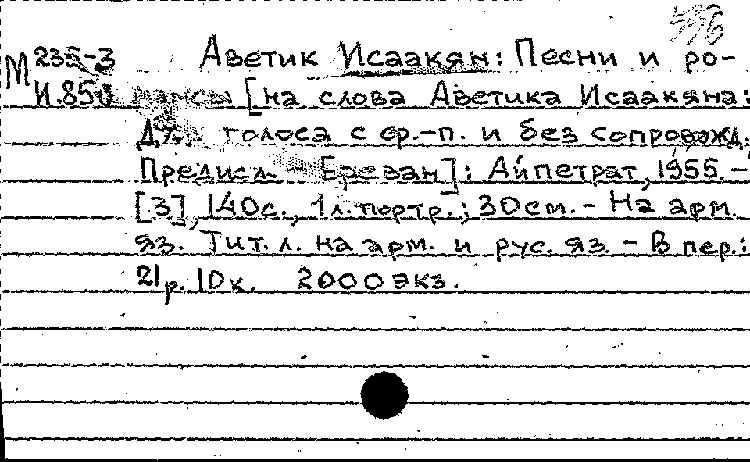 М 235-3 Аветик Исаакян: Песни и ро-
И.856 мансы [на слова Аветика Исаакяна:
Для голоса с ф.-п. и без сопровожд.
Предисл. Ереван]: Айпетрат, 1955.-
[3], 140с., 1 л. портр.; 30см. - На арм.
яз. Тит. л. на арм. и рус. яз. - В пер.:
21р. 10к. 2000 экз.